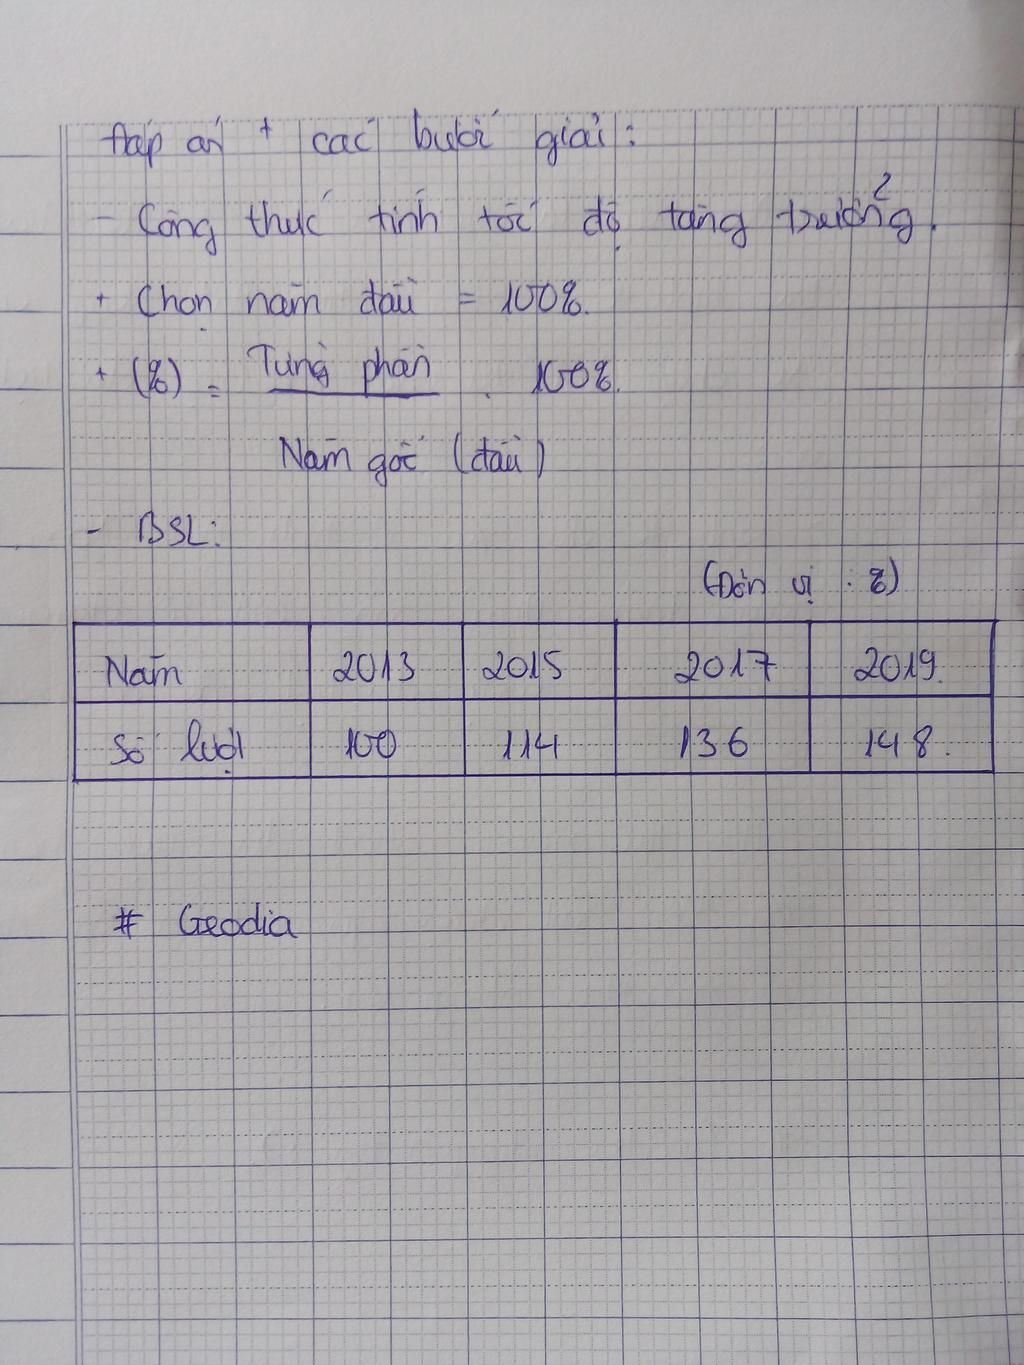 Đáp án + các bước giải:
- Công thức tính tốc độ tăng trưởng.
+ Chọn năm đầu = 100%.
+ (%) = Từng phần . 100%.
Năm gốc (đầu)
- BSL:
(Đơn vị : %)
Năm 2013 2015 2017 2019.
Số lượt 100 114 136 148.
# Geodia